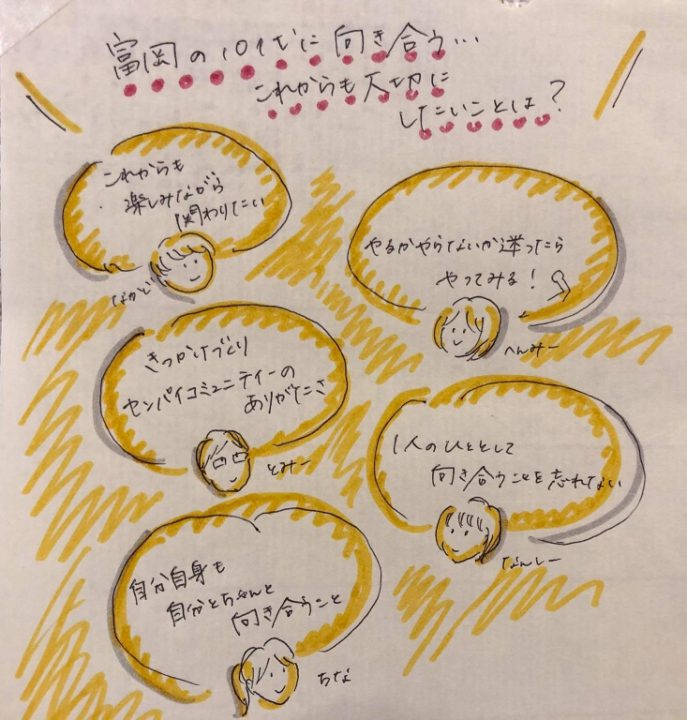 富岡の10代に向き合う…
これからも大切に
したいことは？
これからも
楽しみながら
関わりたい
なかど
やるかやらないか迷ったら
やってみる！
へんみー
きっかけづくり
センパイコミュニティーの
ありがたさ
とみー
1人のひととして
向き合うことを忘れない
なんしー
自分自身も
自分とちゃんと
向き合うこと
ちな